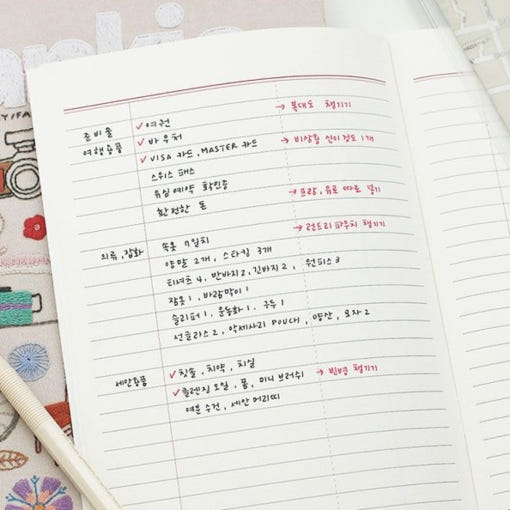 준비물 ✓ 여권 → 복대도 챙기기
여행용품 ✓ 바우처
✓ VISA 카드, MASTER 카드 → 비상용 인쇄본도 1개
스위스 패스
유심 예약 확인증
환전한 돈 → 프랑, 유로 따로 넣기
의류, 잡화 속옷 7일치 → 런드리 파우치 챙기기
양말 2개, 스타킹 3개
티셔츠 4, 반바지 2, 긴바지 2, 원피스 3
잠옷 1, 바람막이 1
슬리퍼 1, 운동화 1, 구두 1
선글라스 2, 악세사리 POUCH, 우양산, 모자 2
세안용품 ✓ 칫솔, 치약, 치실
✓ 클렌징 오일, 폼, 미니 브러쉬 → 빈병 챙기기
여분 수건, 세안 머리띠